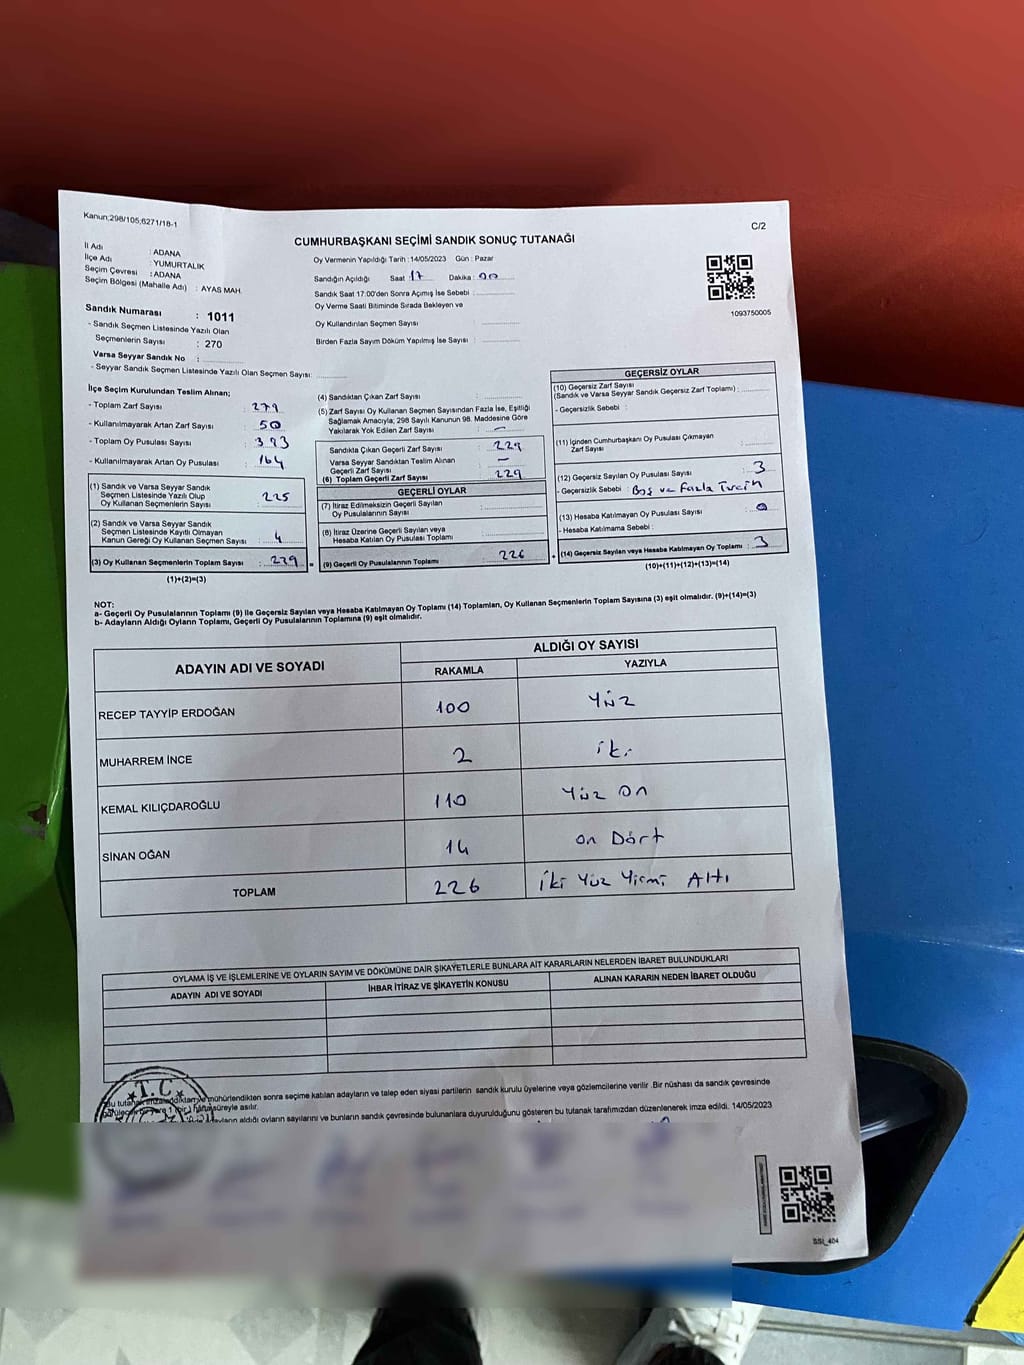 Kanun;298/105;6271/18-1
C/2
CUMHURBAŞKANI SEÇİMİ SANDIK SONUÇ TUTANAĞI
İl Adı : ADANA
İlçe Adı : YUMURTALIK
Seçim Çevresi : ADANA
Seçim Bölgesi (Mahalle Adı) : AYAS MAH.
Oy Vermenin Yapıldığı Tarih : 14/05/2023 Gün : Pazar
Sandığın Açıldığı Saat : 17 Dakika : 00
Sandık Saat 17:00'den Sonra Açımış İse Sebebi :
Oy Verme Saati Bitiminde Sırada Bekleyen ve
Oy Kullandırılan Seçmen Sayısı :
Birden Fazla Sayım Döküm Yapılmış İse Sayısı :
1093750005
Sandık Numarası : 1011
- Sandık Seçmen Listesinde Yazılı Olan
Seçmenlerin Sayısı : 270
Varsa Seyyar Sandık No :
- Seyyar Sandık Seçmen Listesinde Yazılı Olan Seçmen Sayısı:
İlçe Seçim Kurulundan Teslim Alınan;
- Toplam Zarf Sayısı : 279
- Kullanılmayarak Artan Zarf Sayısı : 50
- Toplam Oy Pusulası Sayısı : 393
- Kullanılmayarak Artan Oy Pusulası : 164
(1) Sandık ve Varsa Seyyar Sandık
Seçmen Listesinde Yazılı Olup
Oy Kullanan Seçmenlerin Sayısı : 225
(2) Sandık ve Varsa Seyyar Sandık
Seçmen Listesinde Kayıtlı Olmayan
Kanun Gereği Oy Kullanan Seçmen Sayısı : 4
(3) Oy Kullanan Seçmenlerin Toplam Sayısı : 229
(1)+(2)=(3)
(4) Sandıktan Çıkan Zarf Sayısı :
(5) Zarf Sayısı Oy Kullanan Seçmen Sayısından Fazla İse, Eşitliği
Sağlamak Amacıyla; 298 Sayılı Kanunun 98. Maddesine Göre
Yakılarak Yok Edilen Zarf Sayısı : –
Sandıkta Çıkan Geçerli Zarf Sayısı : 229
Varsa Seyyar Sandıktan Teslim Alınan
Geçerli Zarf Sayısı : –
(6) Toplam Geçerli Zarf Sayısı : 229
GEÇERLİ OYLAR
(7) İtiraz Edilmeksizin Geçerli Sayılan
Oy Pusulalarının Sayısı :
(8) İtiraz Üzerine Geçerli Sayılan veya
Hesaba Katılan Oy Pusulası Toplamı :
(9) Geçerli Oy Pusulalarının Toplamı : 226
GEÇERSİZ OYLAR
(10) Geçersiz Zarf Sayısı
(Sandık ve Varsa Seyyar Sandık Geçersiz Zarf Toplamı) :
- Geçersizlik Sebebi :
(11) İçinden Cumhurbaşkanı Oy Pusulası Çıkmayan
Zarf Sayısı :
(12) Geçersiz Sayılan Oy Pusulası Sayısı : 3
- Geçersizlik Sebebi : Boş ve Fazla Tercih
(13) Hesaba Katılmayan Oy Pusulası Sayısı : 0
- Hesaba Katılmama Sebebi :
(14) Geçersiz Sayılan veya Hesaba Katılmayan Oy Toplamı : 3
(10)+(11)+(12)+(13)=(14)
NOT:
a- Geçerli Oy Pusulalarının Toplamı (9) ile Geçersiz Sayılan veya Hesaba Katılmayan Oy Toplamı (14) Toplamları, Oy Kullanan Seçmenlerin Toplam Sayısına (3) eşit olmalıdır. (9)+(14)=(3)
b- Adayların Aldığı Oyların Toplamı, Geçerli Oy Pusulalarının Toplamına (9) eşit olmalıdır.
ADAYIN ADI VE SOYADI ALDIĞI OY SAYISI
RAKAMLA YAZIYLA
RECEP TAYYİP ERDOĞAN 100 Yüz
MUHARREM İNCE 2 iki
KEMAL KILIÇDAROĞLU 110 Yüz On
SİNAN OĞAN 14 On Dört
TOPLAM 226 İki Yüz Yirmi Altı
OYLAMA İŞ VE İŞLEMLERİNE VE OYLARIN SAYIM VE DÖKÜMÜNE DAİR ŞİKAYETLERLE BUNLARA AİT KARARLARIN NELERDEN İBARET BULUNDUKLARI
ADAYIN ADI VE SOYADI İHBAR İTİRAZ VE ŞİKAYETİN KONUSU ALINAN KARARIN NEDEN İBARET OLDUĞU
T.C.
mühürlendikten sonra seçime katılan adayların ve talep eden siyasi partilerin sandık kurulu üyelerine veya gözlemcilerine verilir .Bir nüshası da sandık çevresinde
süreyle asılır.
aldığı oyların sayılarını ve bunların sandık çevresinde bulunanlara duyurulduğunu gösteren bu tutanak tarafımızdan düzenlenerek imza edildi. 14/05/2023
SSI_404